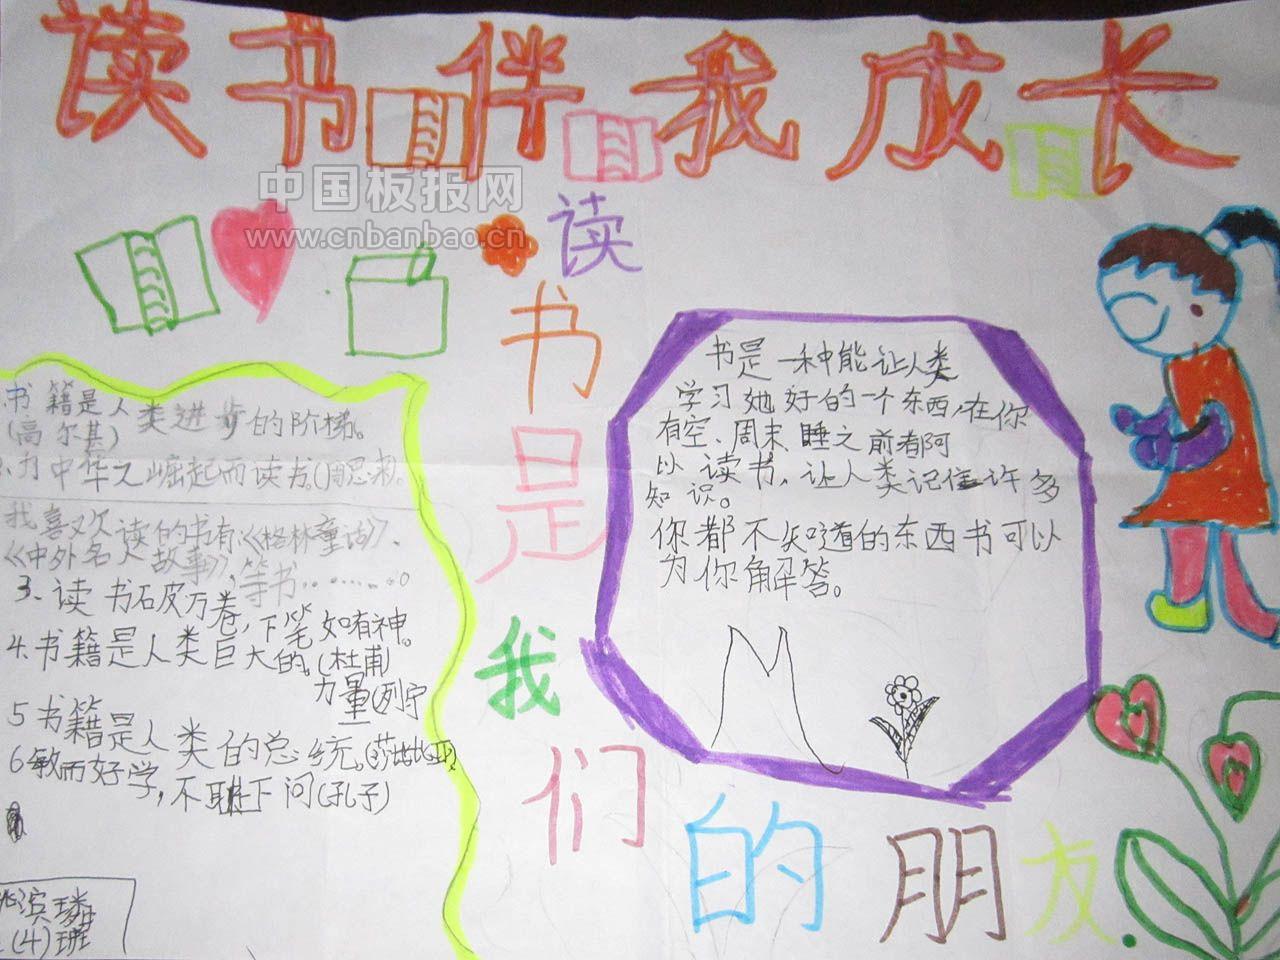 读书伴我成长
中国板报网
www.cnbanbao.cn
读书是我们的朋友.
书籍是人类进步的阶梯。
(高尔基)
为中华之崛起而读书。(周恩来)
我喜欢读的书有:《格林童话》、
《中外名人故事》,等书………。
3、读书破万卷,下笔如有神。
(杜甫)
4.书籍是人类巨大的力量(列宁
5书籍是人类的总统。(莎士比亚)
6敏而好学,不耻下问(孔子)
(4)班
书是一种能让人类
学习她好的一个东西,在你
有空、周末、睡之前都阿
以读书,让人类记住许多
知识。
你都不知道的东西书可以
为你解答。